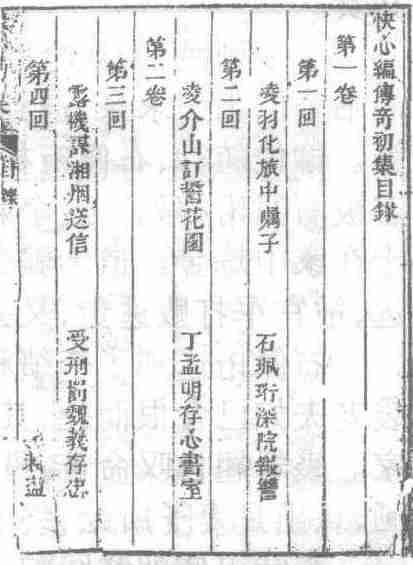 快心編傳奇初集目錄
第一卷
第一回
凌羽化旅中囑子 石珮珩深院報讐
第二回
凌介山訂誓花園 丁孟明存心書室
第二卷
第三回
露機謀湘烟送信 受刑罰魏義存忠
第四回